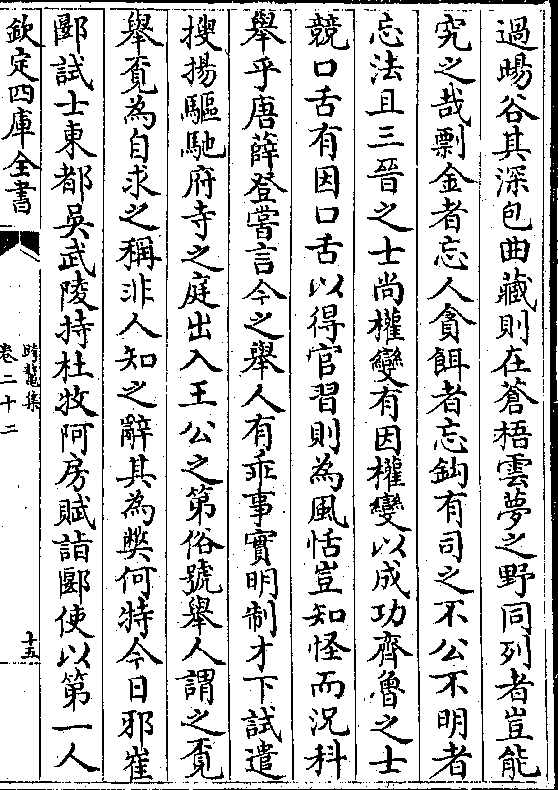 過暘谷其深包曲藏則在蒼梧雲夢之野同列者豈能
究之哉剽金者忘人貪餌者忘鈎有司之不公不明者
忘法且三晉之士尚權變有因權變以成功齊魯之士
競口舌有因口舌以得官習則為風恬豈知怪而況科
舉乎唐薛登嘗言今之舉人有乖事實明制才下試遣
搜揚驅馳府寺之庭出入王公之第俗號舉人謂之覔
舉覔為自求之稱非人知之辭其為獘何特今日邪崔
郾試士東都吳武陵持杜牧阿房賦詣郾使以第一人
欽定四庫全書
卷二十二
十五